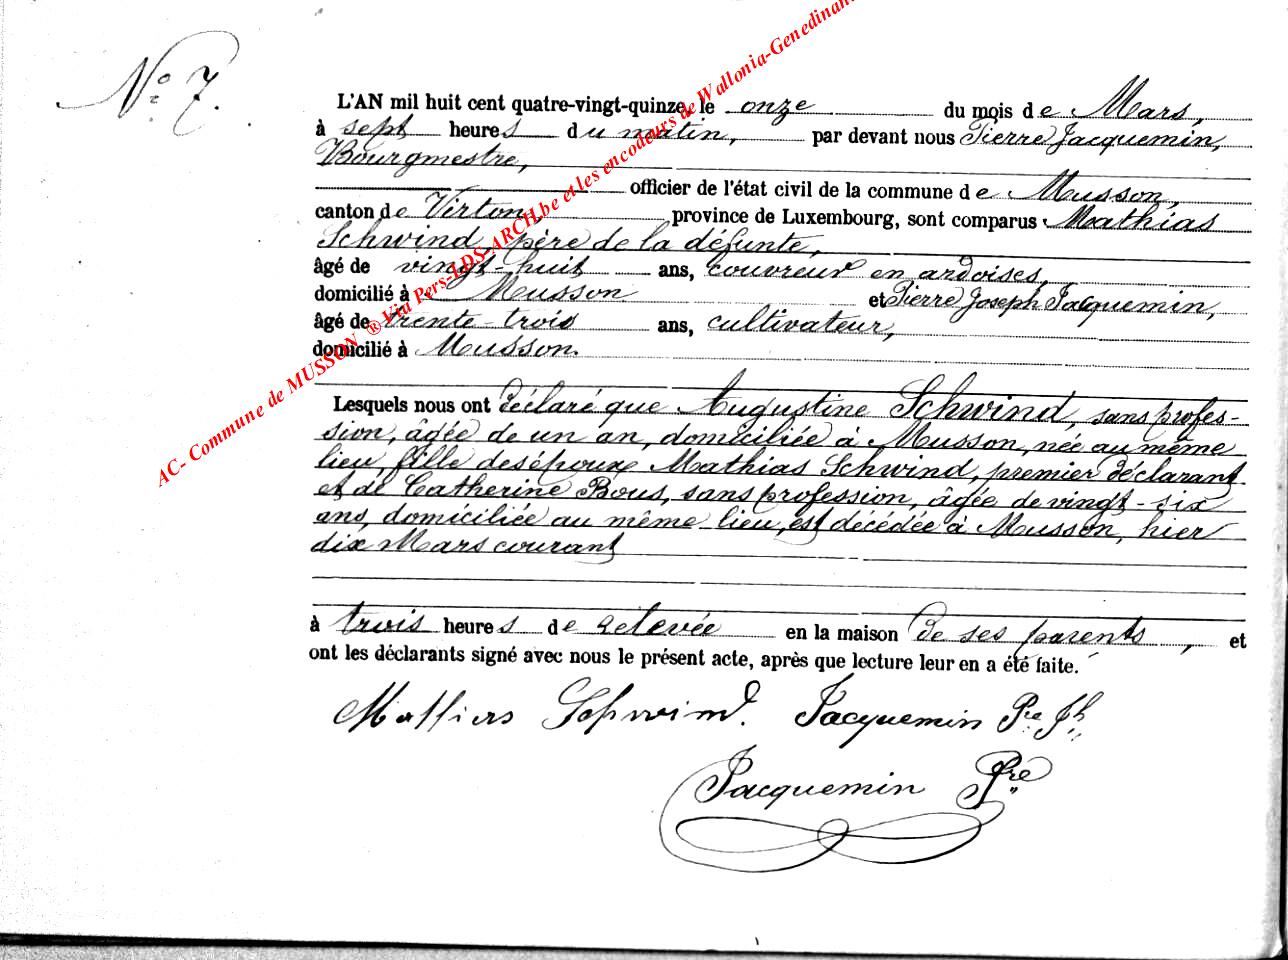 N° 7.
AC- Commune de MUSSON ® Via Pers-LDS-ARCH.be et les encodeurs de Wallonia-Genedinant
L'AN mil huit cent quatre-vingt-quinze, le onze du mois de Mars,
à sept heures du matin, par devant nous Pierre Jacquemin,
Bourgmestre,
officier de l'état civil de la commune de Musson,
canton de Virton, province de Luxembourg, sont comparus Mathias
Schwind, père de la défunte,
âgé de vingt-huit ans, couvreur en ardoises,
domicilié à Musson et Pierre Joseph Jacquemin,
âgé de trente-trois ans, cultivateur,
domicilié à Musson.
Lesquels nous ont déclaré que Augustine Schwind, sans profes-
sion, âgée de un an, domiciliée à Musson, née au même
lieu, fille des époux Mathias Schwind, premier déclarant
et de Catherine Bous, sans profession, âgée de vingt-six
ans, domiciliée au même lieu, est décédée à Musson, hier
dix Mars courant
à trois heures de relevée en la maison de ses parents, et
ont les déclarants signé avec nous le présent acte, après que lecture leur en a été faite.
Mathias Schwind. Jacquemin Pre Jh
Jacquemin Pre